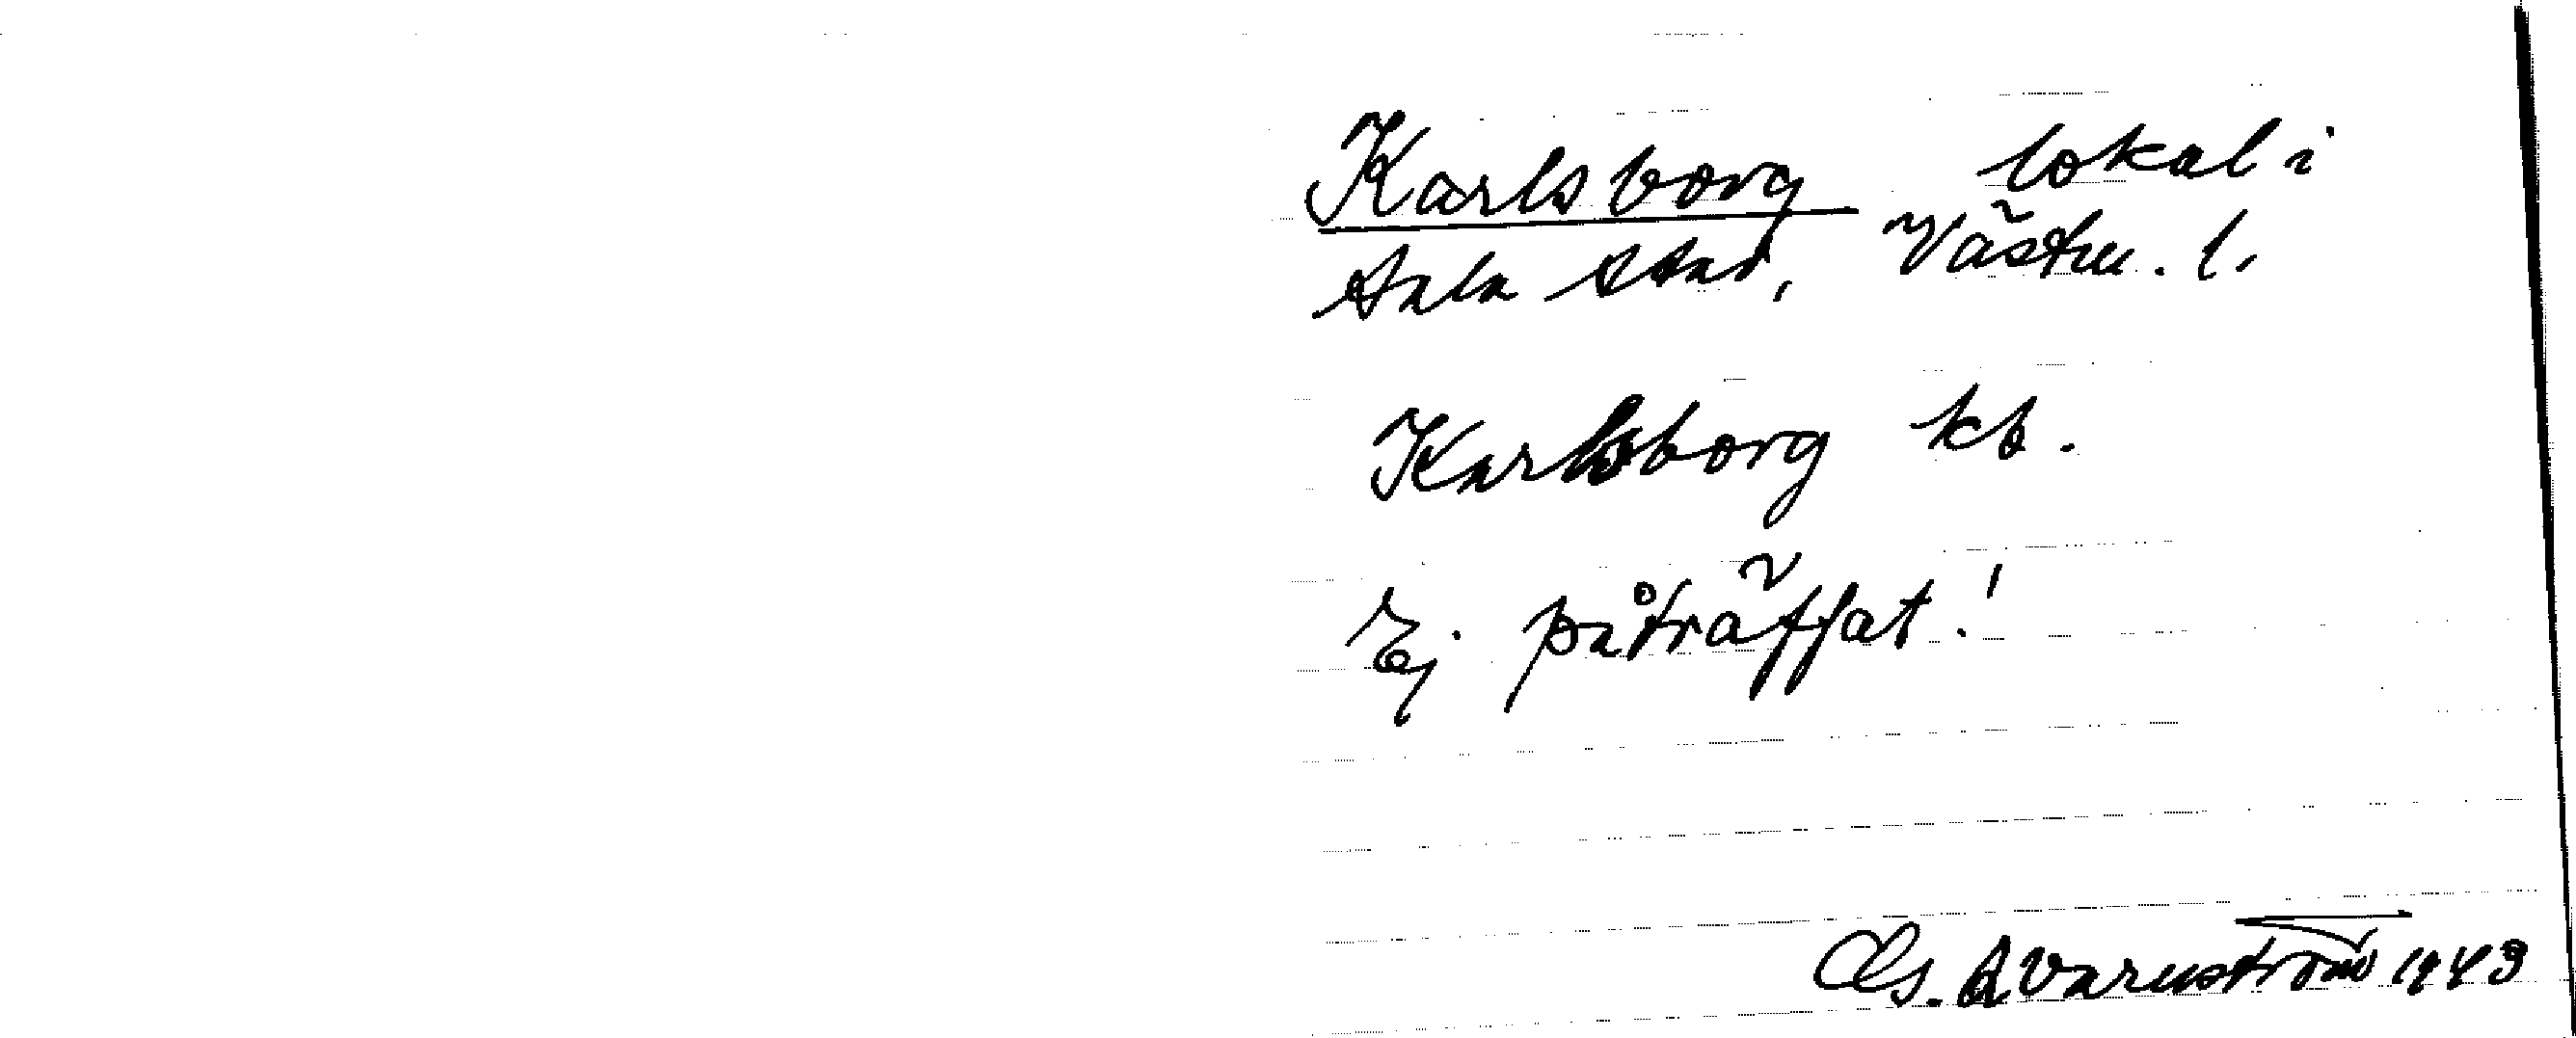 Karlsborg lokal i
Sala stad, Västm. l.
Karlsborg kb.
Ej påträffat!
Cls. Qvarnström 1943